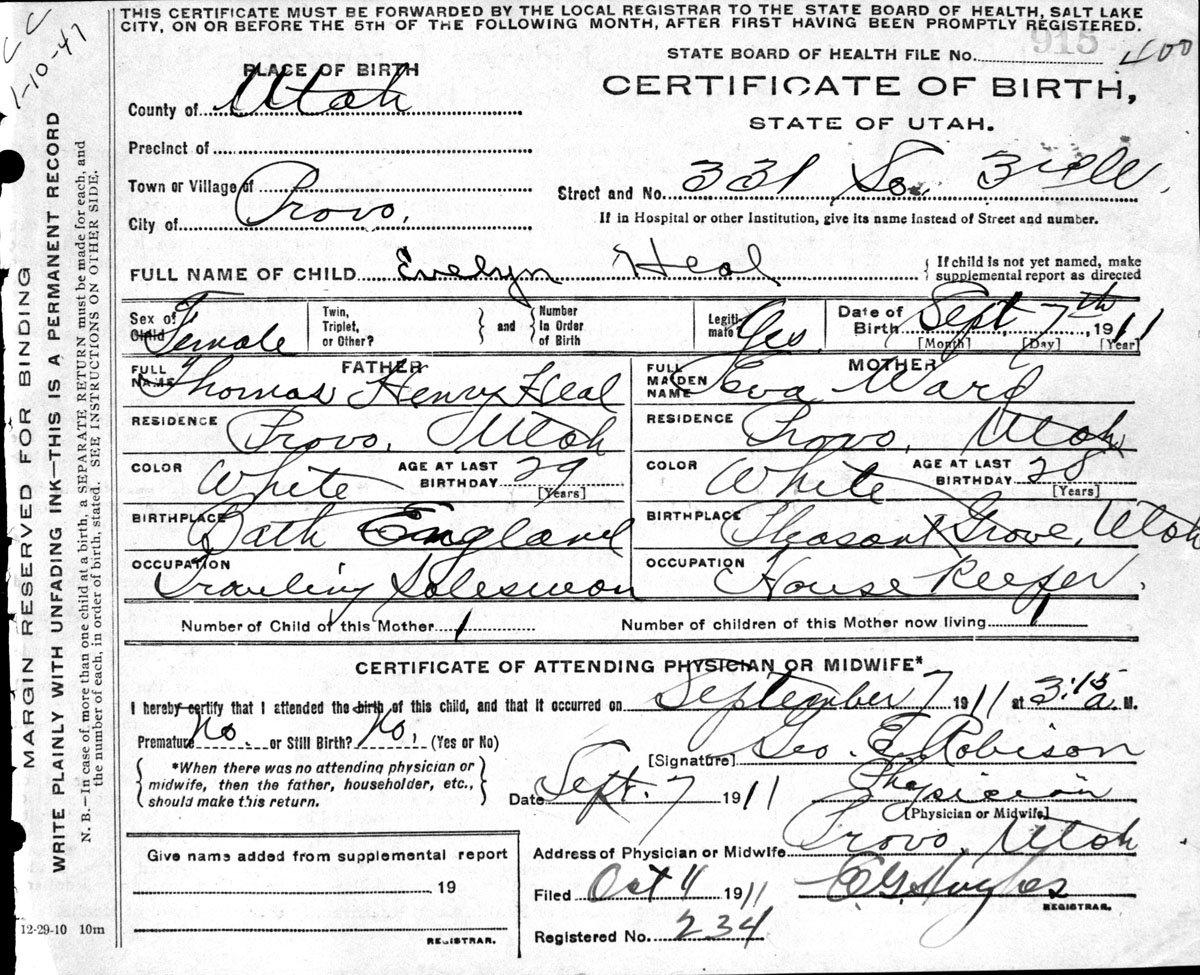 THIS CERTIFICATE MUST BE FORWARDED BY THE LOCAL REGISTRAR TO THE STATE BOARD OF HEALTH, SALT LAKE
CITY, ON OR BEFORE THE 5TH OF THE FOLLOWING MONTH, AFTER FIRST HAVING BEEN PROMPTLY REGISTERED.
1-10-47
915
STATE BOARD OF HEALTH FILE No. 400
PLACE OF BIRTH
CERTIFICATE OF BIRTH,
STATE OF UTAH.
County of Utah
Precinct of
Town or Village of
Street and No. 331 So. 3rd W.
City of Provo.
If in Hospital or other Institution, give its name instead of Street and number.
FULL NAME OF CHILD Evelyn Heal
{ If child is not yet named, make
supplemental report as directed
Sex of Child Female
Twin, Triplet, or Other? } and { Number In Order of Birth
Legitimate? Yes.
Date of Birth Sept 7th, 1911
[Month] [Day] [Year]
FATHER
FULL NAME Thomas Henry Heal
MOTHER
FULL MAIDEN NAME Eva Ward
RESIDENCE Provo, Utah
RESIDENCE Provo, Utah
COLOR White AGE AT LAST BIRTHDAY 29 [Years]
COLOR White AGE AT LAST BIRTHDAY 28 [Years]
BIRTHPLACE Bath England
BIRTHPLACE Pleasant Grove, Utah
OCCUPATION Traveling Salesman
OCCUPATION House Keeper.
Number of Child of this Mother 1
Number of children of this Mother now living 1
CERTIFICATE OF ATTENDING PHYSICIAN OR MIDWIFE*
I hereby certify that I attended the birth of this child, and that it occurred on September 7 1911 at 3:15 a. M.
Premature No. or Still Birth? No. (Yes or No)
[Signature] Geo. E. Robison
{ *When there was no attending physician or
midwife, then the father, householder, etc.,
should make this return. }
Date Sept. 7 1911
Physician
[Physician or Midwife]
Give name added from supplemental report
19
REGISTRAR.
Address of Physician or Midwife Provo, Utah
Filed Oct 4 1911 E G Hughes
REGISTRAR.
Registered No. 234
12-29-10 10m
MARGIN RESERVED FOR BINDING
WRITE PLAINLY WITH UNFADING INK—THIS IS A PERMANENT RECORD
N. B.—In case of more than one child at a birth, a SEPARATE RETURN must be made for each, and
the number of each, in order of birth, stated. SEE INSTRUCTIONS ON OTHER SIDE.